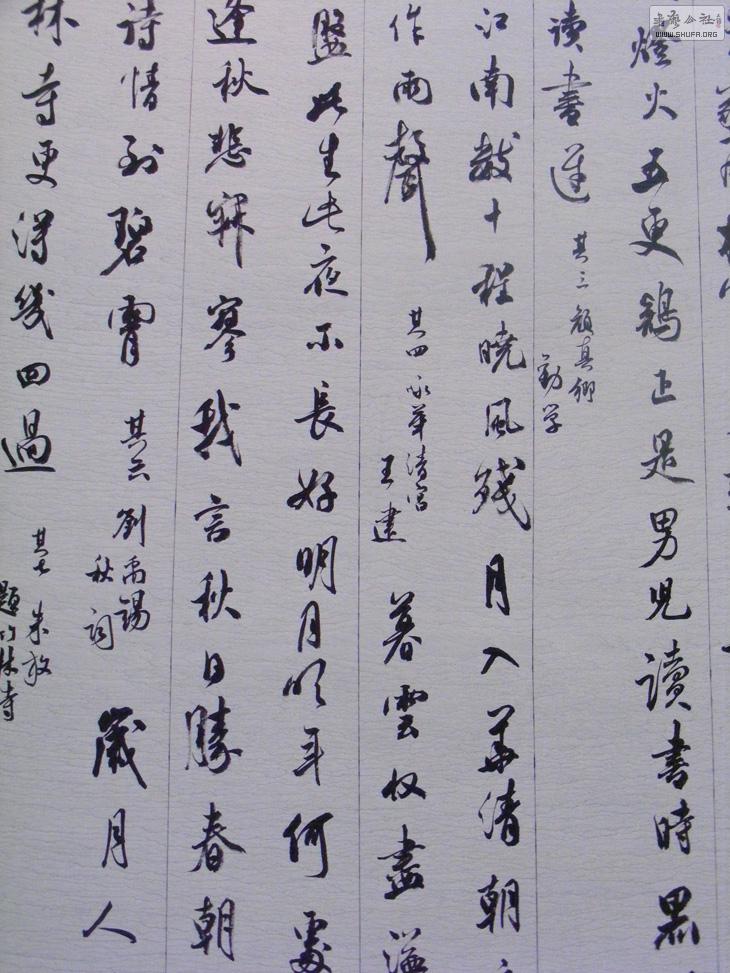 燈火五更鷄正是男児讀書時黑
读書遲 其三 顏真卿
勸学
江南数十程曉風殘月入華清朝
作雨聲 其四 咏華清宫
王建 暮雲收盡溢
盤此生此夜不長好明月明年何處
逢秋悲寂寥我言秋日勝春朝
詩情到碧霄 其六 劉禹錫
秋詞 歲月人
林寺更得幾回過 其七 朱放
題竹林寺
書藝公社
WWW.SHUFA.ORG